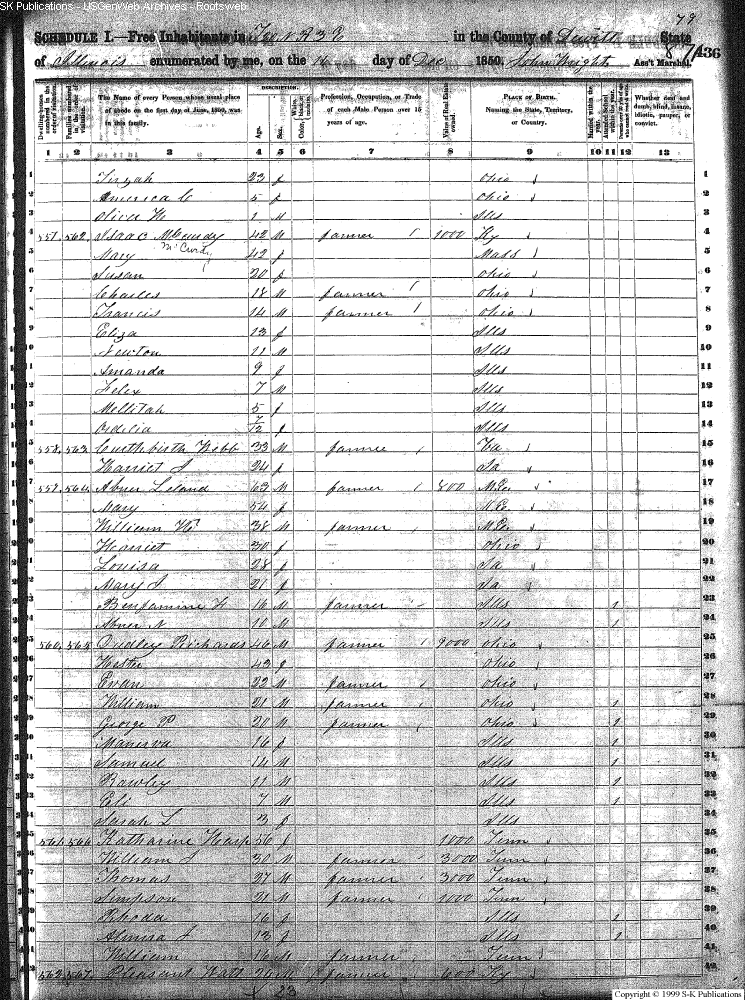 SK Publications - USGenWeb Archives - Rootsweb
79
SCHEDULE I.—Free Inhabitants in in the County of Dewitt State
87 436
of Illinois enumerated by me, on the 16 day of Dec 1850. John Wright Ass't Marshal.
DESCRIPTION.
Dwelling-houses numbered in the order of visitation. Families numbered in the order of visitation. The Name of every Person whose usual place of abode on the first day of June, 1850, was in this family. Age. Sex. Color, White, black, or mulatto. Profession, Occupation, or Trade of each Male Person over 15 years of age. Value of Real Estate owned. PLACE OF BIRTH. Naming the State, Territory, or Country. Married within the year. Attended School within the year. Persons over 20 y'rs of age who cannot read & write. Whether deaf and dumb, blind, insane, idiotic, pauper, or convict.
1 2 3 4 5 6 7 8 9 10 11 12 13
1 Tirzah 23 f Ohio 1
2 America C 5 f Ohio 2
3 Oliver H 1 M Ills 3
4 557 562 Isaac McCurdy 42 M farmer 1000 Ky 4
McCurdy
5 Mary 42 f Mass 5
6 Susan 20 f Ohio 6
7 Charles 18 M farmer Ohio 7
8 Francis 14 M farmer Ohio 8
9 Eliza 13 f Ills 9
10 Newton 11 M Ills 10
11 Amanda 9 f Ills 11
12 Felix 7 M Ills 12
13 Mellitah 5 f Ills 13
14 Ordelia 7/12 f Ills 14
15 558 563 Webb 33 M farmer Va 15
16 Harriet J 24 f 16
17 559 564 Abner Leland 63 M farmer 800 17
18 Mary 54 f 18
19 William W 38 M farmer 19
20 Harriet 30 f Ohio 20
21 Louisa 28 f 21
22 Mary J 21 f 22
23 Benjamine F 16 M farmer Ills 1 23
24 Abner N 10 M Ills 1 24
25 560 565 Dudley Richards 46 M farmer 9000 Ohio 25
26 43 f Ohio 26
27 Evan 22 M farmer Ohio 27
28 William 21 M farmer Ohio 1 28
29 George P 20 M farmer Ohio 1 29
30 Manerva 16 f Ills 1 30
31 Samuel 14 M Ills 1 31
32 Rawley 11 M Ills 1 32
33 Eli 7 M Ills 1 33
34 Sarah L 3 f Ills 34
35 561 566 Katharine Harp 56 f 1000 Tenn 35
36 William J 30 M farmer 3000 Tenn 36
37 Thomas 27 M farmer 3000 Tenn 37
38 Simpson 21 M farmer 1000 Tenn 38
39 Rhoda 16 f Ills 1 39
40 Almira J 13 f Ills 1 40
41 William 16 M farmer Tenn 41
42 562 567 Pleasant 26 M farmer 600 Ky 42
23
Copyright © 1999 S-K Publications